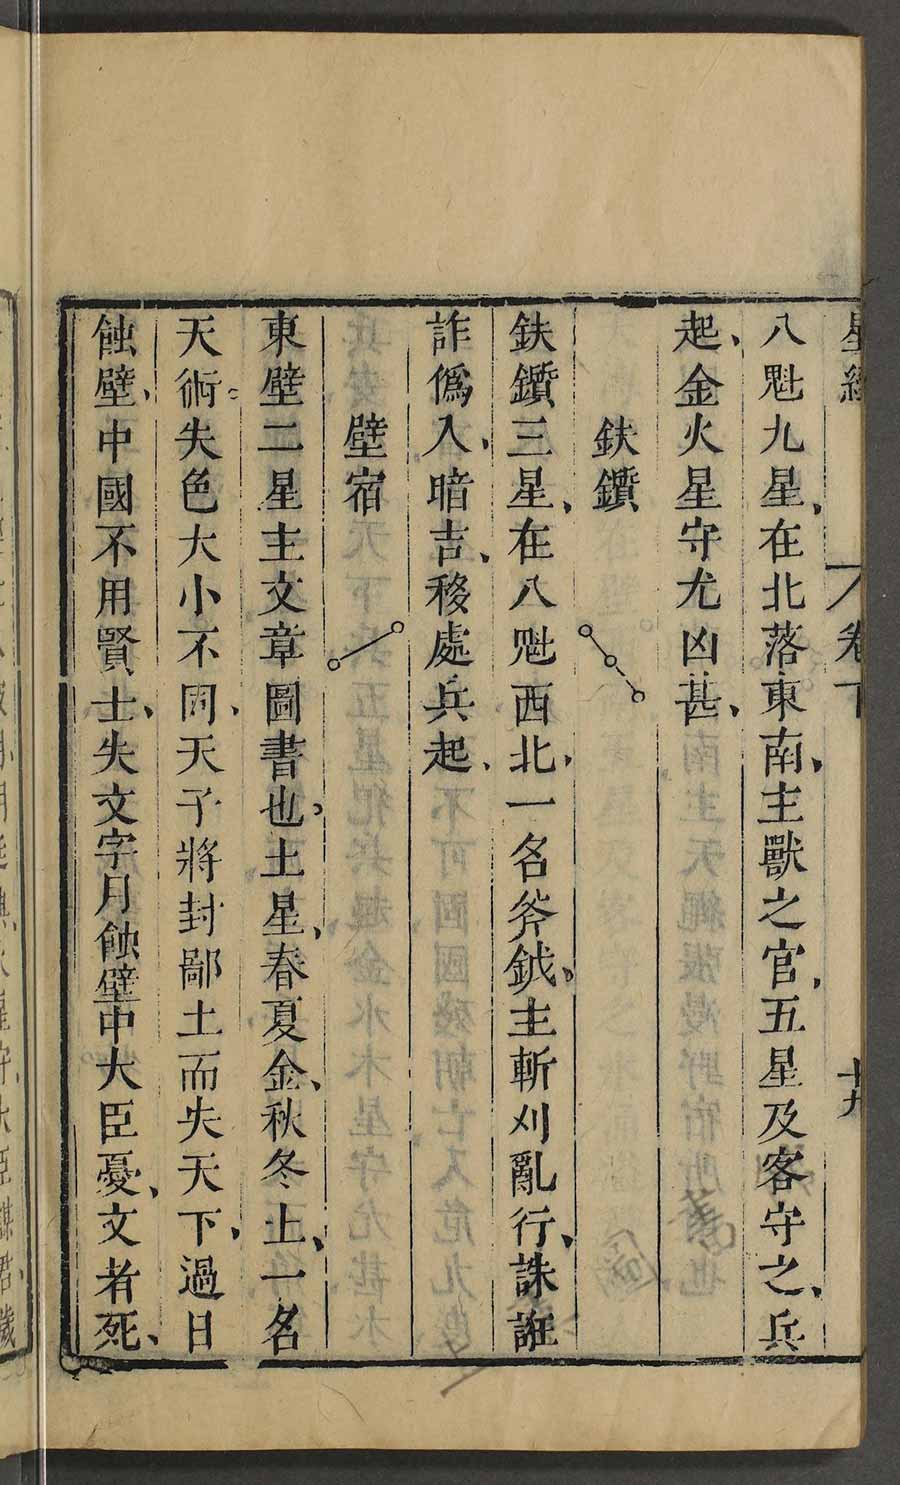 星經 卷下 十九
八魁九星、在北落東南、主獸之官、五星及客守之、兵
起、金火星守尤凶甚、
鈇鑕
鈇鑕三星、在八魁西北、一名斧鉞、主斬刈亂行、誅誑
詐僞人、暗吉、移處兵起、
壁宿
東壁二星主文章圖書也、土星、春夏金、秋冬土、一名
天術。失色大小不同、天子將封鄙土而失天下、過日
蝕壁、中國不用賢士、失文字月蝕壁中大臣憂、文者死、